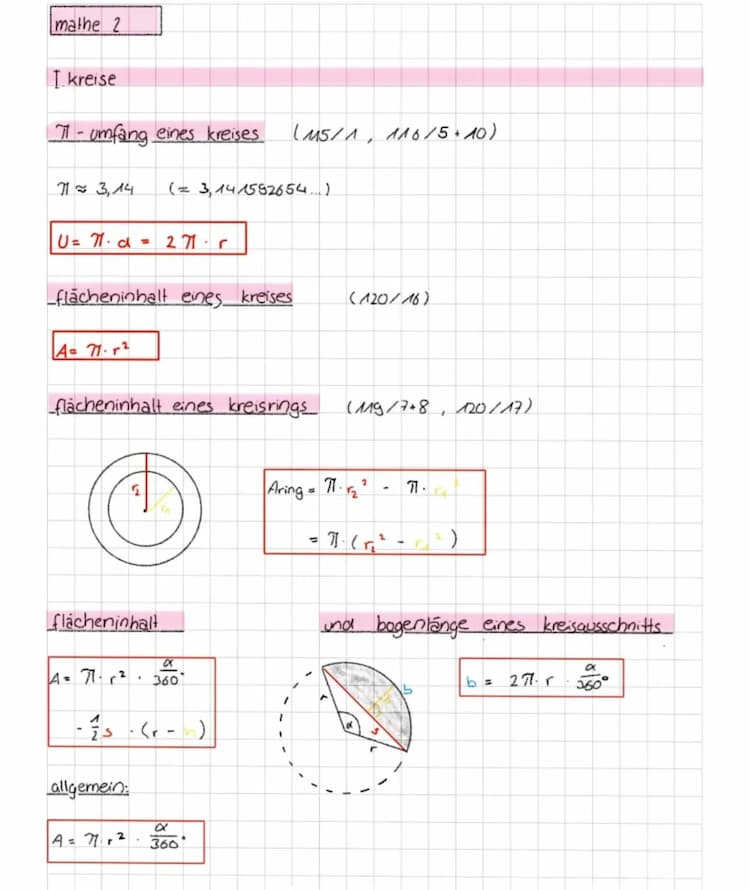 mathe 2
I kreise
π - umfang eines kreises (115/1, 116/5+10)
π ≈ 3,14 (= 3,141592654...)
U = π · d = 2π · r
flächeninhalt eines kreises (120/16)
A = π · r²
flächeninhalt eines kreisrings (119/7+8, 120/17)
r₂ r₁
Aring = π · r₂² - π · r₁²
= π · (r₂² - r₁²)
flächeninhalt und bogenlänge eines kreisausschnitts
A = π · r² · α/360°
- 1/2 s · (r - h)
r b h s α r
b = 2π · r · α/360°
allgemein:
A = π · r² · α/360°